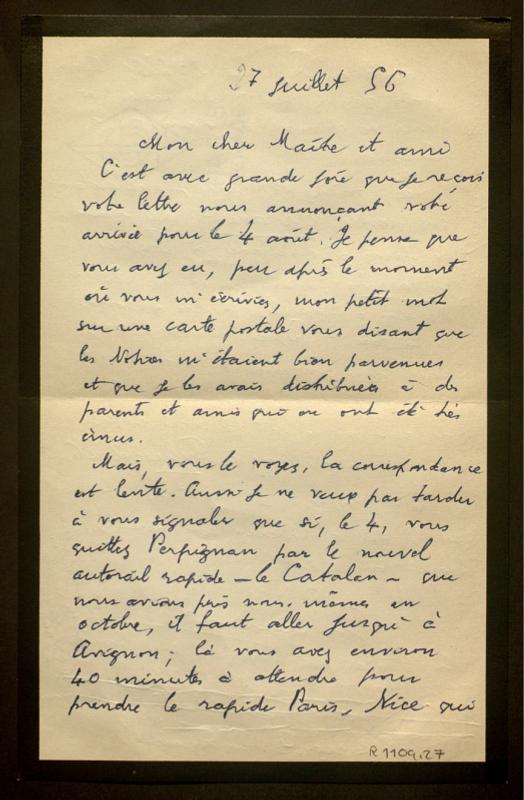 27 juillet 56
Mon cher Maître et ami
C'est avec grande joie que je reçois
votre lettre nous annonçant votre
arrivée pour le 4 août. Je pense que
vous avez eu, peu après le moment
où vous m'écriviez, mon petit mot
sur une carte postale vous disant que
les Notices m'étaient bien parvenues
et que je les avais distribuées à des
parents et amis qui en ont été très
émus.
Mais, vous le voyez, la correspondance
est lente. Aussi je ne veux pas tarder
à vous signaler que si, le 4, vous
quittez Perpignan par le nouvel
autorail rapide - le Catalan - que
nous avions pris nous-mêmes en
octobre, il faut aller jusqu'à
Avignon; là vous avez environ
40 minutes à attendre pour
prendre le rapide Paris, Nice qui
R1109.27